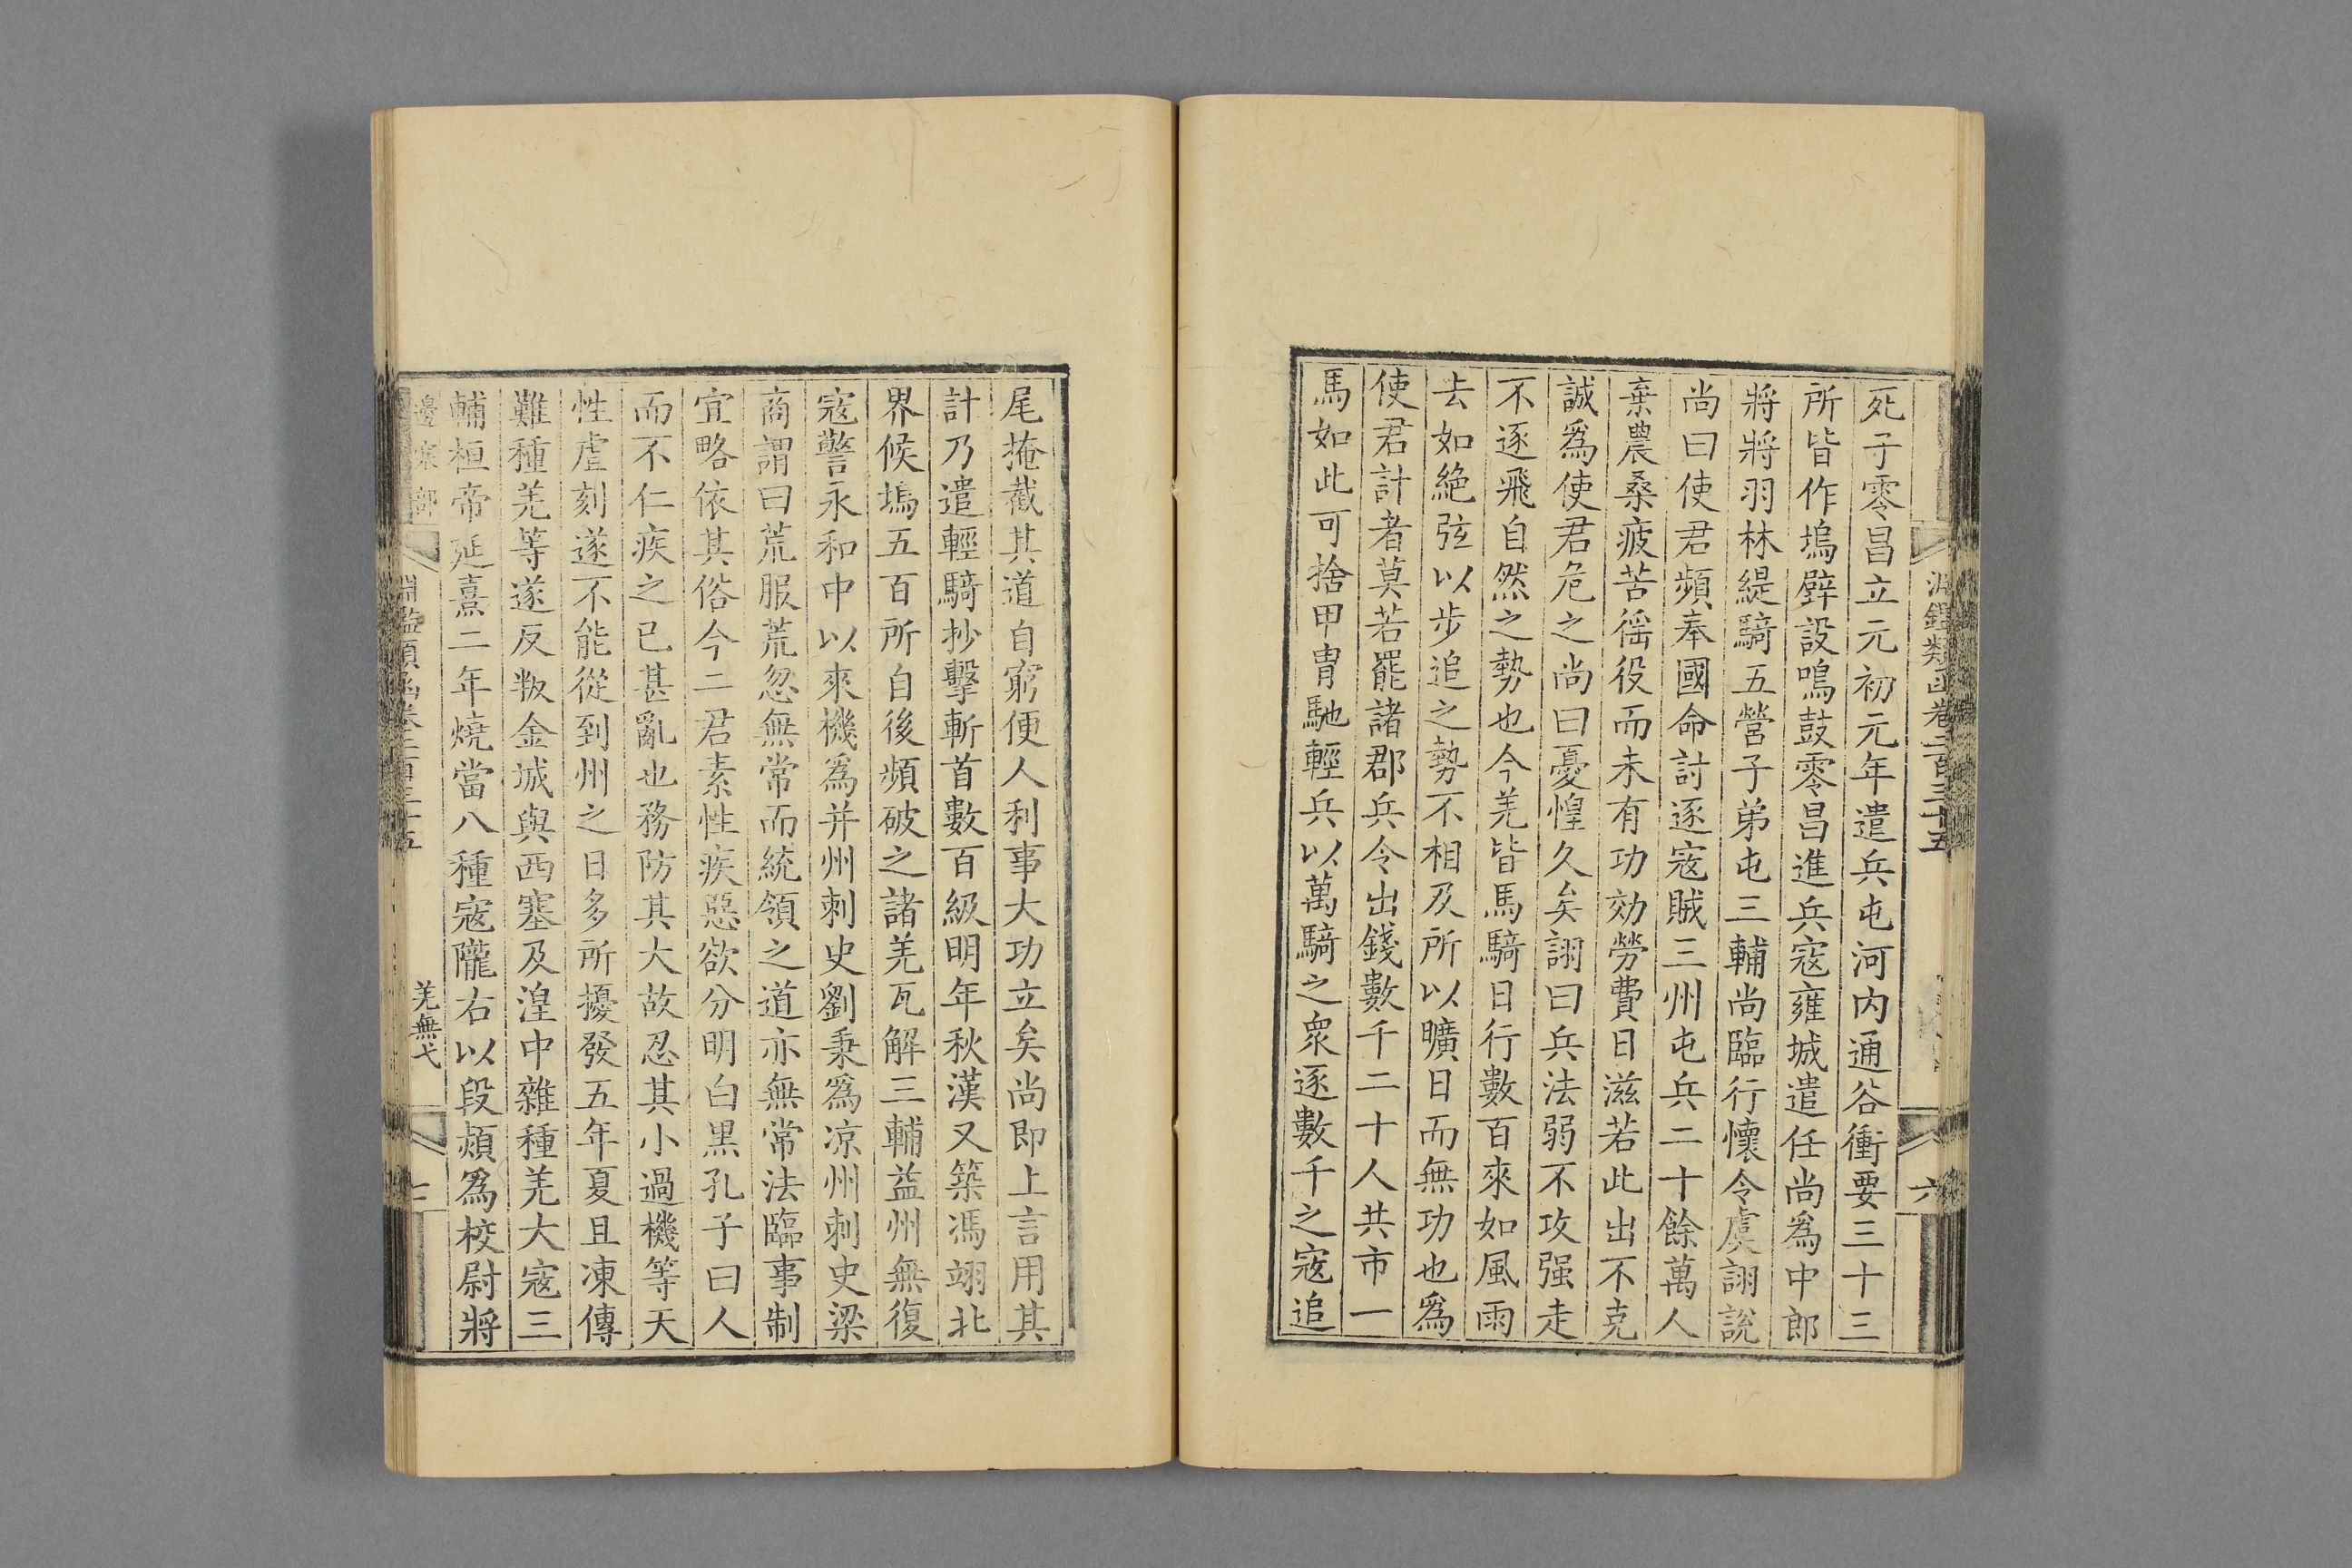 淵鑑類函卷二百三十五
六
死子零昌立元初元年遣兵屯河內通谷衝要三十三
所皆作塢壁設鳴鼓零昌進兵寇雍城遣任尚為中郎
將將羽林緹騎五營子弟屯三輔尚臨行懷令虞詡說
尚曰使君頻奉國命討逐寇賊三州屯兵二十餘萬人
棄農桑疲苦徭役而未有功効勞費日滋若此出不克
誠為使君危之尚曰憂惶久矣詡曰兵法弱不攻强走
不逐飛自然之勢也今羌皆馬騎日行數百來如風雨
去如絕弦以步追之勢不相及所以曠日而無功也為
使君計者莫若罷諸郡兵令出錢數千二十人共市一
馬如此可捨甲胄馳輕兵以萬騎之衆逐數千之寇追
尾掩截其道自窮便人利事大功立矣尚即上言用其
計乃遣輕騎抄擊斬首數百級明年秋漢又築馮翊北
界候塢五百所自後頻破之諸羌瓦解三輔益州無復
寇警永和中以來機為并州刺史劉秉為凉州刺史梁
商謂曰荒服荒忽無常而統領之道亦無常法臨事制
宜略依其俗今二君素性疾惡欲分明白黑孔子曰人
而不仁疾之已甚亂也務防其大故忍其小過機等天
性虐刻遂不能從到州之日多所擾發五年夏且凍傳
難種羌等遂反叛金城與西塞及湟中雜種羌大寇三
輔桓帝延熹二年燒當八種寇隴右以段熲為校尉將
邊塞部
淵鑑類函卷二百三十五
羌無弋
七